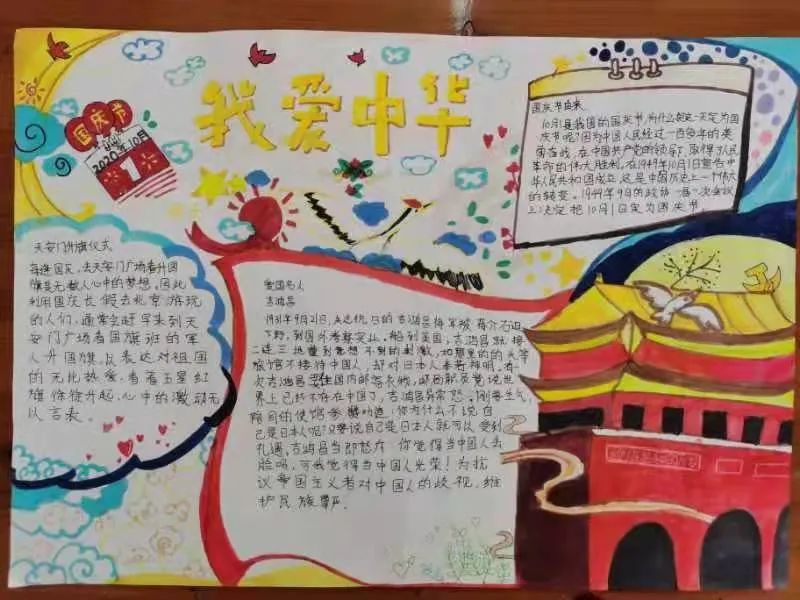 我爱中华
国庆节
2020年10月
1
国庆节由来
10月1是我国的国庆节,为什么
定为国
庆节呢?因为中国人民经过一百多年的英
勇奋战,在中国共产党的领导下,取得了人民
革命的伟大胜利,在1949年10月1日宣告中
华人民共和国成立,这是中国历史上一个伟大
的转变。1949年9月的政协一届一次会议
上决定把10月1日定为国庆节。
天安门升旗仪式
每逢国庆,去天安门广场看升国
旗是无数人心中的梦想。因此
利用国庆长假去北京游玩
的人们,通常会赶早来到天
安门广场看国旗班的军
人升国旗,以表达对祖国
的无比热爱,看着五星红
旗徐徐升起,心中的激动无
以言表。
爱国名人
吉鸿昌
1931年9月21日,矢志抗日的吉鸿昌将军被蒋介石迫
下野,到国外考察实业。船到美国,吉鸿昌就接
二连三地遭到意想不到的刺激,如那里的头等
旅馆不接待中国人,却对日本人奉若神明。有一
次吉鸿昌要往国内邮寄衣物,邮局职员竟说世
界上已经不存在中国了,吉鸿昌异常怒,刚要
陪同的使馆参赞劝道:你为什么不说自
己是日本人呢?只要说自己是日本人就可以受到
礼遇,吉鸿昌当即怒斥:你觉得当中国人丢
脸吗,可我觉得当中国人光荣!为抗
议帝国主义者对中国人的歧视,维
护民族尊严。